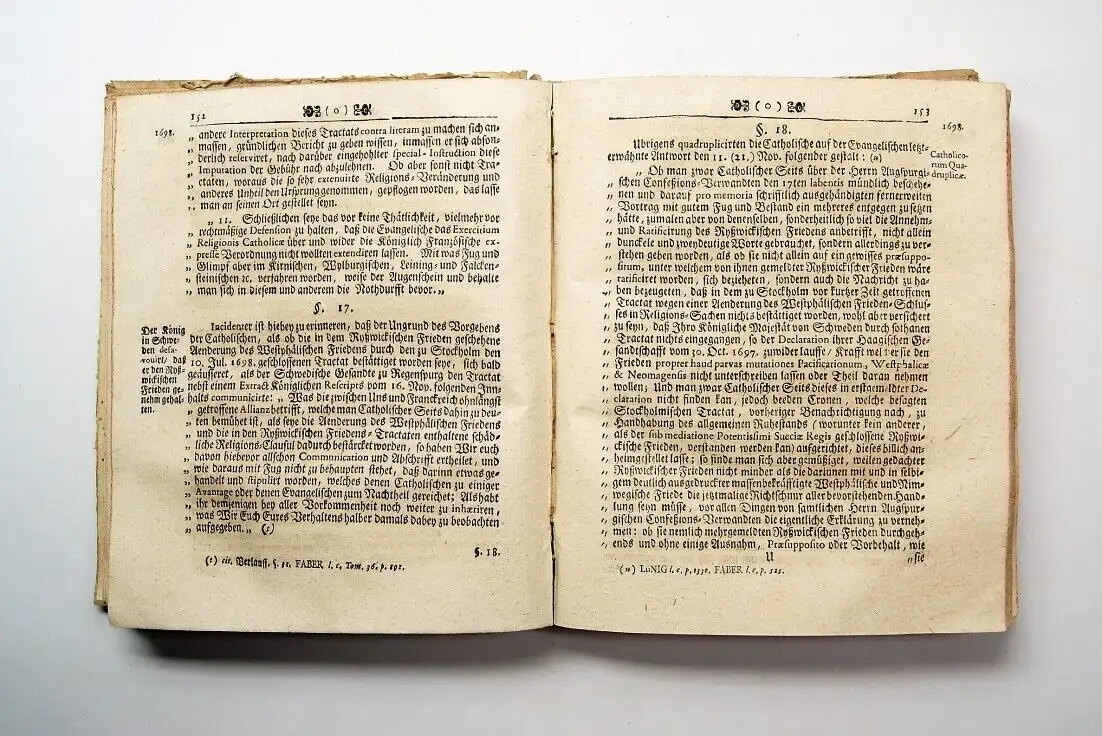 152
( o )
1698.
„ andere Interpretation dieses Tractats contra literam zu machen sich an-
„ massen, gründlichen Bericht zu geben wissen, inmassen er sich abson-
„ derlich reserviret, nach darüber eingeholter special-Instruction diese
„ Imputation der Gebühr nach abzulehnen. Ob aber sonst nicht Tra-
„ ctaten, woraus die so sehr extenuirte Religions-Veränderung und
„ anderes Unheil den Ursprung genommen, gepflogen worden, das lasse
„ man an seinen Ort gestellet seyn.
„ 11. Schließlichen seye das vor keine Thätlichkeit, vielmehr vor
„ rechtmäßige Defension zu halten, daß die Evangelische das Exercitium
„ Religionis Catholicæ über und wider die Königlich Französische ex-
„ presse Verordnung nicht wollten extendiren lassen. Mit was Fug und
„ Glimpf aber im Kirnischen, Wylburgischen, Leining- und Falcken-
„ steinischen ꝛc. verfahren worden, weise der Augenschein und behalte
„ man sich in diesem und anderem die Nothdurfft bevor.„
§. 17.
Der König
in Schwe-
den desa-
vouirt/ daß
er den Ryß-
wickischen
Frieden ge-
nehm gehal-
ten.
Incidenter ist hiebey zu erinneren, daß der Ungrund des Vorgebens
der Catholischen, als ob die in dem Ryßwickischen Frieden geschehene
Aenderung des Westphälischen Friedens durch den zu Stockholm den
10. Jul. 1698. geschlossenen Tractat bestättiget worden seye, sich bald
geäusseret, als der Schwedische Gesandte zu Regenspurg den Tractat
nebst einem Extract Königlichen Rescripts vom 16. Nov. folgenden Inn-
halts communicirte: „ Was die zwischen Uns und Franckreich ohnlängst
„ getroffene Allianz betrifft, welche man Catholischer Seits dahin zu deu-
„ ten bemühet ist, als seye die Aenderung des Westphälischen Friedens
„ und die in den Ryßwickischen Friedens-Tractaten enthaltene schäd-
„ liche Religions-Clausul dadurch bestärcket worden, so haben Wir euch
„ davon hiebevor allschon Communication und Abschrifft ertheilet, und
„ wie daraus mit Fug nicht zu behaupten stehet, daß darinn etwas ge-
„ handelt und stipulirt worden, welches denen Catholischen zu einiger
„ Avantage oder denen Evangelischen zum Nachtheil gereichet; Als habt
„ ihr demjenigen bey aller Vorkommenheit noch weiter zu inhæriren,
„ was Wir Euch Eures Verhaltens halber damals dabey zu beobachten
„ aufgegeben.„ (t)
§. 18.
(t) cit. Verlauff. §. 31. FABER l. c. Tom. 36. p. 191.
( o )
153
§. 18.
1698.
Ubrigens quadruplicirten die Catholische auf der Evangelischen letzt-
erwähnte Antwort den 11. (21.) Nov. folgender gestalt: (u)
Catholico-
rum Qua-
druplicæ.
„ Ob man zwar Catholischer Seits über der Herrn Augspurgi-
„ schen Confeßions-Verwandten den 17ten labentis mündlich beschehe-
„ nen und darauf pro memoria schrifftlich ausgehändigten fernerweiten
„ Vortrag mit gutem Fug und Bestand ein mehreres entgegen zu setzen
„ hätte, zumalen aber von denenselben, sonderheitlich so viel die Annehm-
„ und Ratificirung des Ryßwickischen Friedens anbetrifft, nicht allein
„ dunckele und zweydeutige Worte gebrauchet, sondern allerdings zu ver-
„ stehen geben worden, als ob sie nicht allein auf ein gewisses præsuppo-
„ situm, unter welchem von ihnen gemeldter Ryßwickischer Frieden wäre
„ ratificiret worden, sich bezieheten, sondern auch die Nachricht zu ha-
„ ben bezeugeten, daß in dem zu Stockholm vor kurtzer Zeit getroffenen
„ Tractat wegen einer Aenderung des Westphälischen Frieden-Schlus-
„ ses in Religions-Sachen nichts bestättiget worden, wohl aber versichert
„ zu seyn, daß Ihro Königliche Majestät von Schweden durch sothanen
„ Tractat nichts eingegangen, so der Declaration ihrer Haagischen Ge-
„ sandtschafft vom 30. Oct. 1697. zuwider lauffe/ Krafft welcher sie den
„ Frieden propter haud parvas mutationes Pacificationum, Westphalicæ
„ & Neomagenüs nicht unterschreiben lassen oder Theil daran nehmen
„ wollen; Und man zwar Catholischer Seits dieses in erstgemeldter De-
„ claration nicht finden kan, jedoch beeden Cronen, welche besagten
„ Stockholmischen Tractat, vorheriger Benachrichtigung nach, zu
„ Handhabung des allgemeinen Ruhestands / worunter kein anderer,
„ als der sub mediatione Potentissimi Sueciæ Regis geschlossene Ryßwi-
„ ckische Frieden, verstanden werden kan) aufgerichtet, dieses billich an-
„ heimgestellet lasse; so finde man sich aber gemüßiget, weilen gedachter
„ Ryßwickischer Frieden nicht minder als die darinnen mit und in selbi-
„ gem deutlich ausgedruckter massen bekräfftigte Westphälische und Nim-
„ wegische Friede die jetztmalige Richtschnur aller bevorstehenden Hand-
„ lung seyn müsse, vor allen Dingen von samtlichen Herrn Augspur-
„ gischen Confeßions-Verwandten die eigentliche Erklärung zu verneh-
„ men: ob sie nemlich mehrgemeldten Ryßwickischen Frieden durchgeh-
„ ends und ohne einige Ausnahm, Præsupposito oder Vorbehalt, wie
U
„ sie
(u) LüNIG l. c. p. 1330. FABER l. c. p. 125.